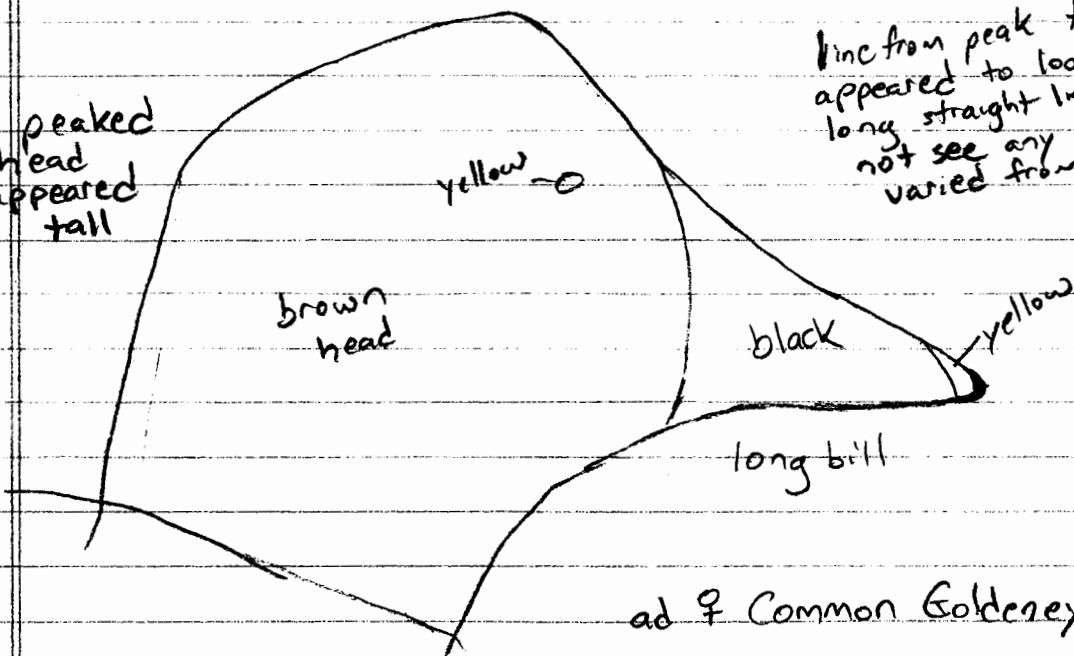 line from peak t
appeared to loo
long straight
not see any
varied from
peaked
head
ppeared
tall
yellow
brown
head
black
yellow
long bill
ad ♀ Common Goldeney